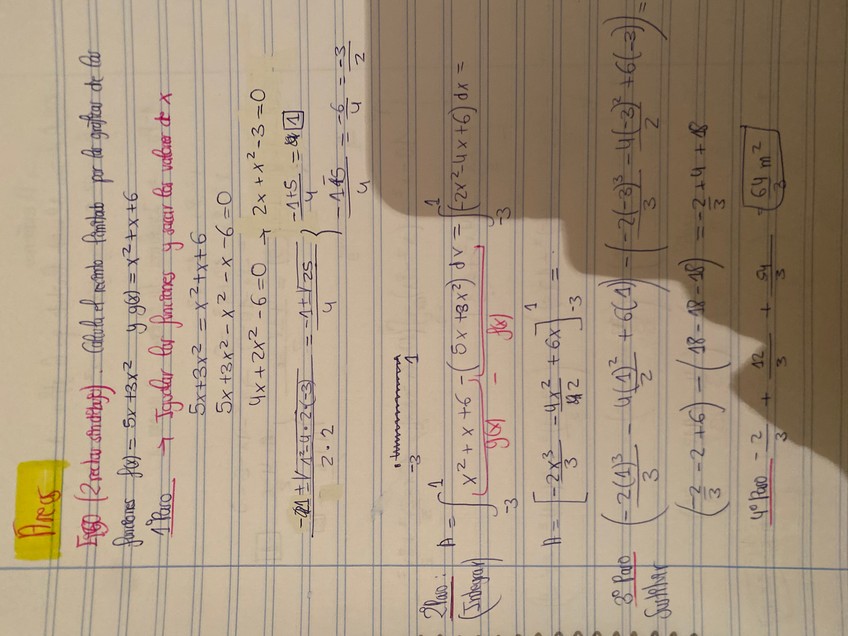 Área
(2 rectas sin dibujo). Calcula el recinto limitado por las gráficas de las
funciones f(x) = 5x+3x² y g(x) = x²+x+6
1º Paso → Igualar las funciones y sacar los valores de x
5x+3x² = x²+x+6
5x+3x²-x²-x-6=0
4x+2x²-6=0 → 2x+x²-3=0
-1±√1²-4·2·(-3) / 2·2 = -1±√25 / 4 { -1+5/4 = 1
-1+5/4 = -6/4 = -3/2
-3 1
2º Paso: A = ∫₋₃¹ x²+x+6-(5x+3x²) dx = ∫₋₃¹ (-2x²-4x+6) dx =
(Integrar) g(x) - f(x)
A = [-2x³/3 - 4x²/2 + 6x]₋₃¹ =
3º Paso (-2(1)³/3 - 4(1)²/2 + 6(1)) - (-2(-3)³/3 - 4(-3)²/2 + 6(-3)) =
(-2/3 - 2 + 6) - (18-18-18) = -2/3 + 4 + 18
4º Paso -2/3 + 12/3 + 54/3 = 64/3 m²